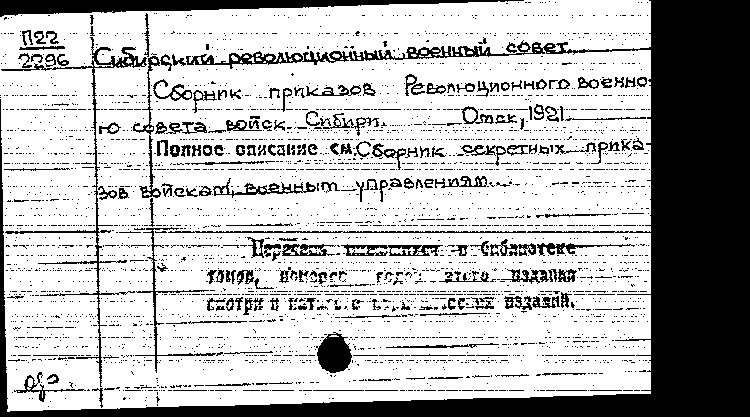 П22
2296
Сибирский революционный военный совет.
Сборник приказов Революционного военно-
го совета войск Сибири. Омск, 1921.
Полное описание см. Сборник секретных прика-
зов войскам, военным управлениям...
Перечень имеющихся в библиотеке
томов, номеров, годов этого издания
смотри в каталоге периодических изданий.